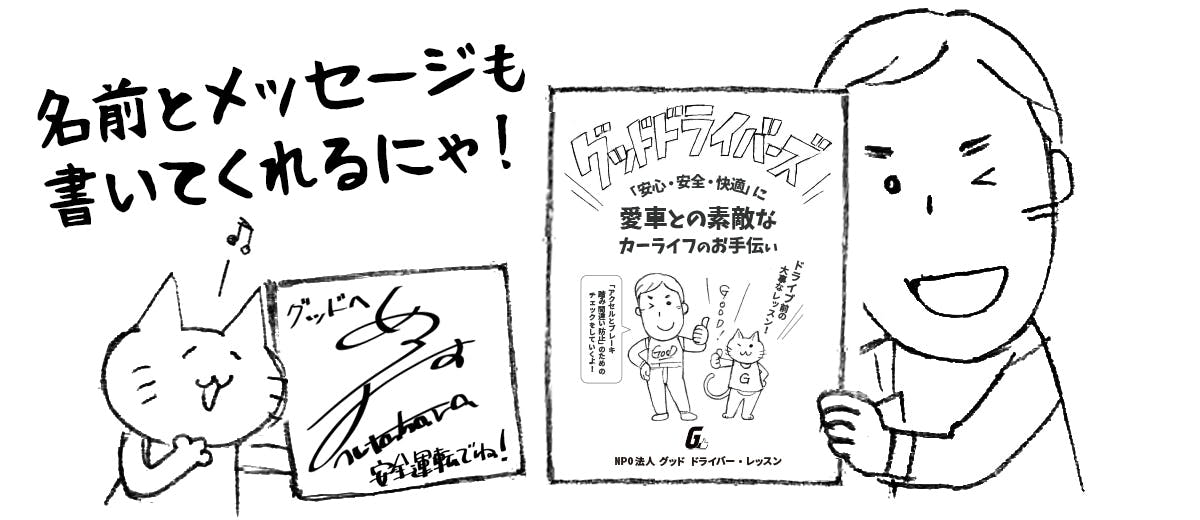 名前とメッセージも
書いてくれるにゃ！
グッドへ
安全運転でね！
グッドドライバーズ
「安心・安全・快適」に
愛車との素敵な
カーライフのお手伝い
ドライブ前の
大事なレッスン！
「アクセルとブレーキ
踏み間違い防止」のための
チェックをしていくよー
GOOD!
GOOD
G
G
NPO法人 グッド ドライバー・レッスン